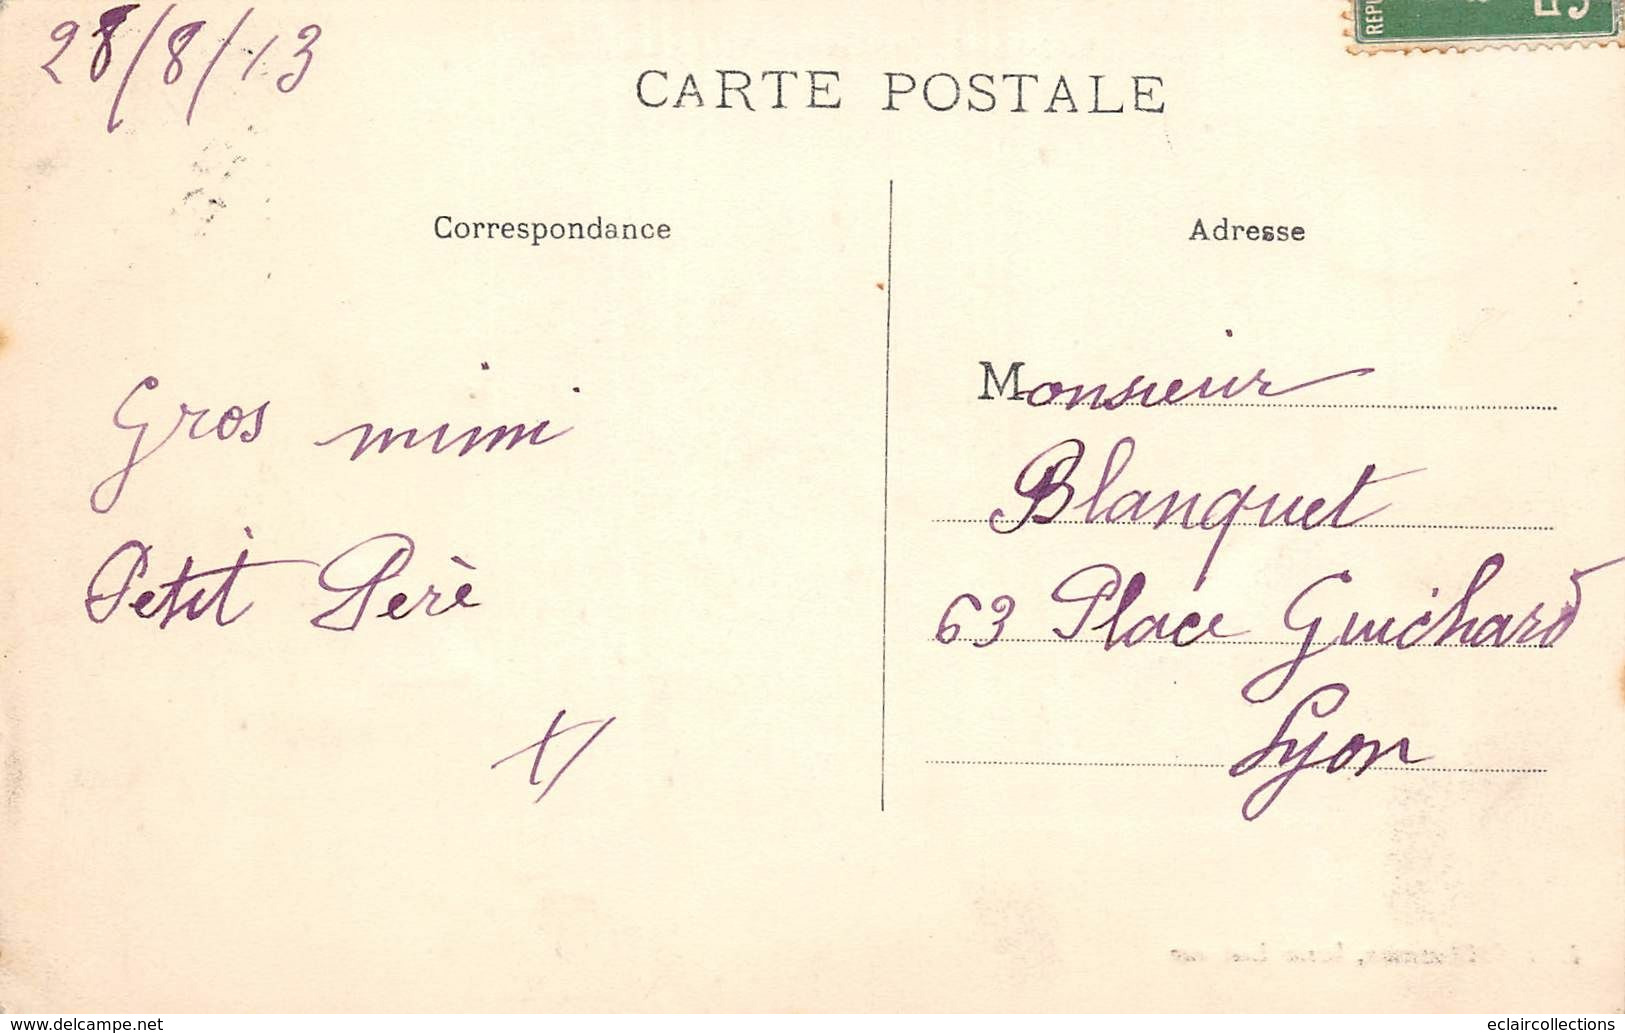 28/8/13
REPU
CARTE POSTALE
Correspondance
Adresse
Gros mimi
Petit Père
Monsieur
Blanquet
63 Place Guichard
Lyon
www.delcampe.net
eclaircollections